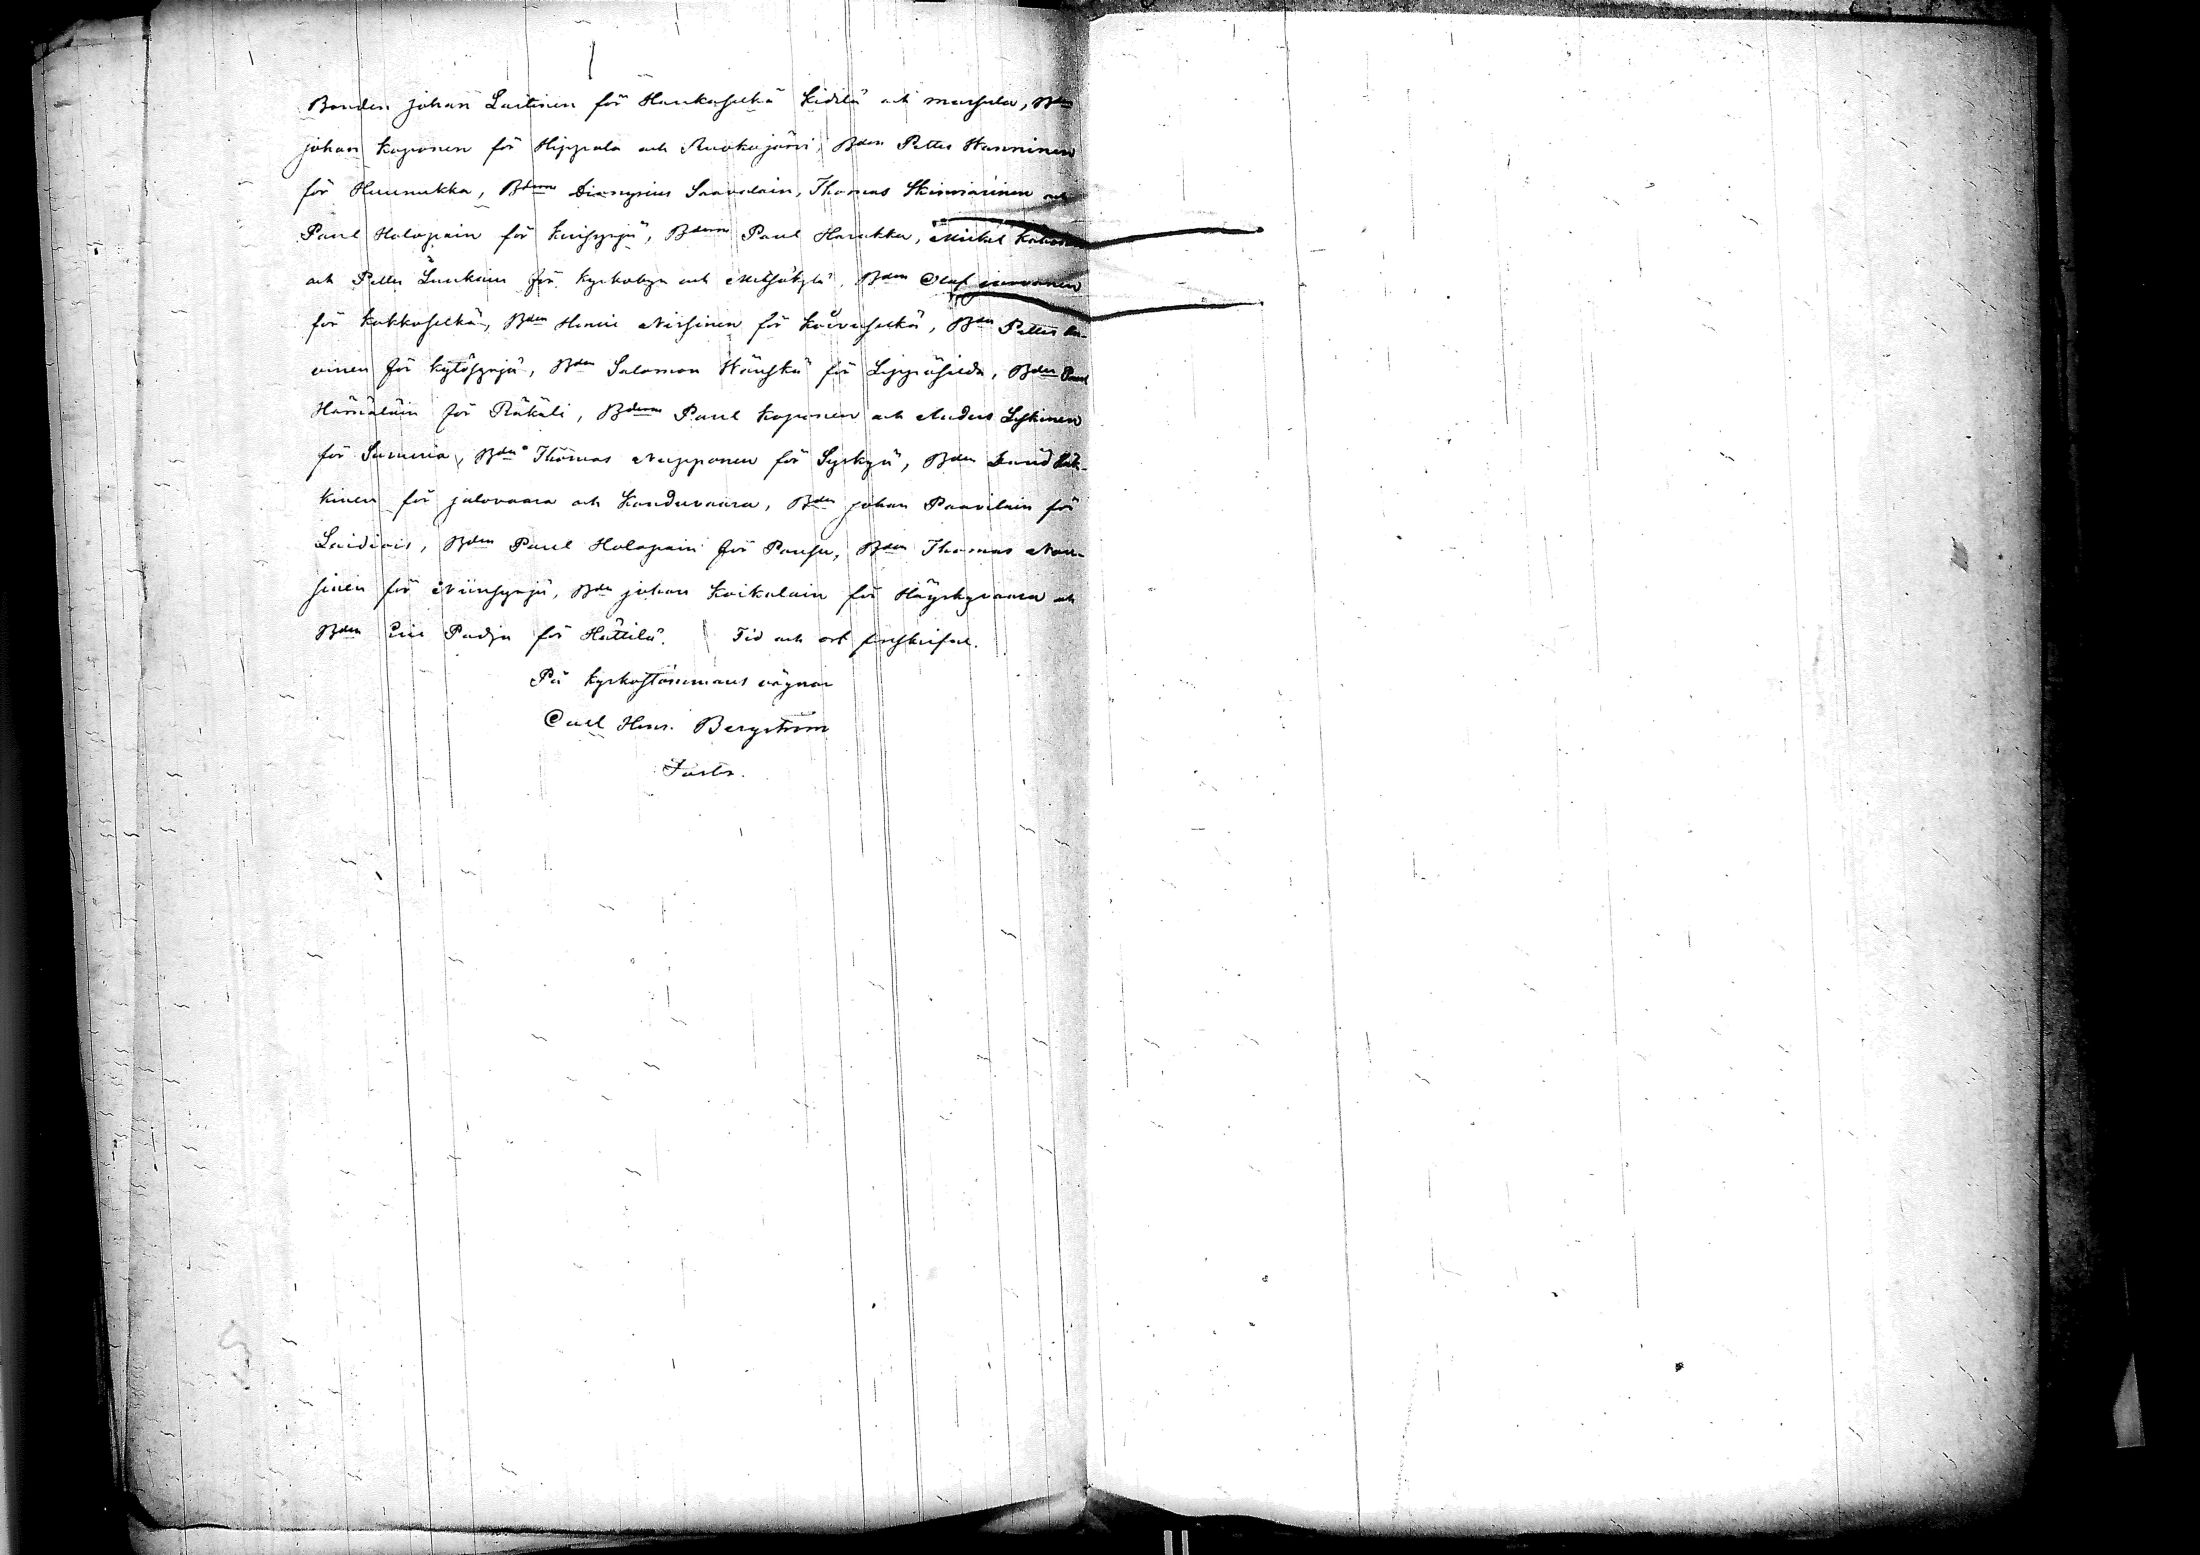 Bonden Johan Laitinen för Haukaselkä Kidelä och Mursula, Bden
Johan Koponen för Hippola och Ruokojärvi, Bden Petter Wänninen
för Huunukka, Bderne Dionysius Saavalain, Thomas Hkinnarinen och
Paul Holopain för Kirisyrjä, Bderne Paul Harakka, Mickel
och Petter för Kyrkobyn och Metsäkylä, Bden Olaf
för Kokkoselkä, Bden Henric Nissinen för Koivuselkä, Bden Petter
vinen för Kytösyrjä, Bden Salomon Wänskä för Leppäselkä, Bden Paul
Hämäläin för Räkäli, Bderne Paul Koponen och Anders Lyskinen
för Sumeria, Bden Thomas Nupponen för Syskyä, Bden
kinen för Jalovaara och Konduvaara, Bden Johan Paavilain för
Laidiois, Bden Paul Holopain för Pausu, Bden Thomas Nou-
sinen för Niinsyrjä, Bden Johan Koikalain för Häyskyvaara och
Bden Eric Padja för Hättilä. Tid och ort förskrifne.
På Kyrkostämmans vägnar
Carl Henr. Bergström
Pastor.